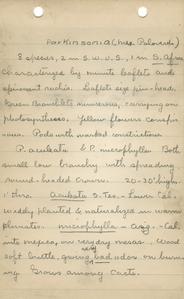 Parkinsonia (inc. Palo verde)
3 species, 2 in S.W. U.S., 1 in S. Africa
Characterized by minute leaflets and
spinescent rachis. Leaflets size pin-head.
Green Branchlets numerous, carrying on
photosynthesis. Yellow flowers conspic-
uous. Pods with marked constrictions
P. aculeata & P. microphylla Both
small low branchy with spreading
round-headed crown. 20-30' high.
1' thru. Aculeata S. Tex - Lower Cal.
widely planted & naturalized in warm
climates. microphylla - Ariz. - Cal.
into mexico, on very dry mesas. Wood
soft brittle, giving bad odor on burn-
ing Grows among Cacti.